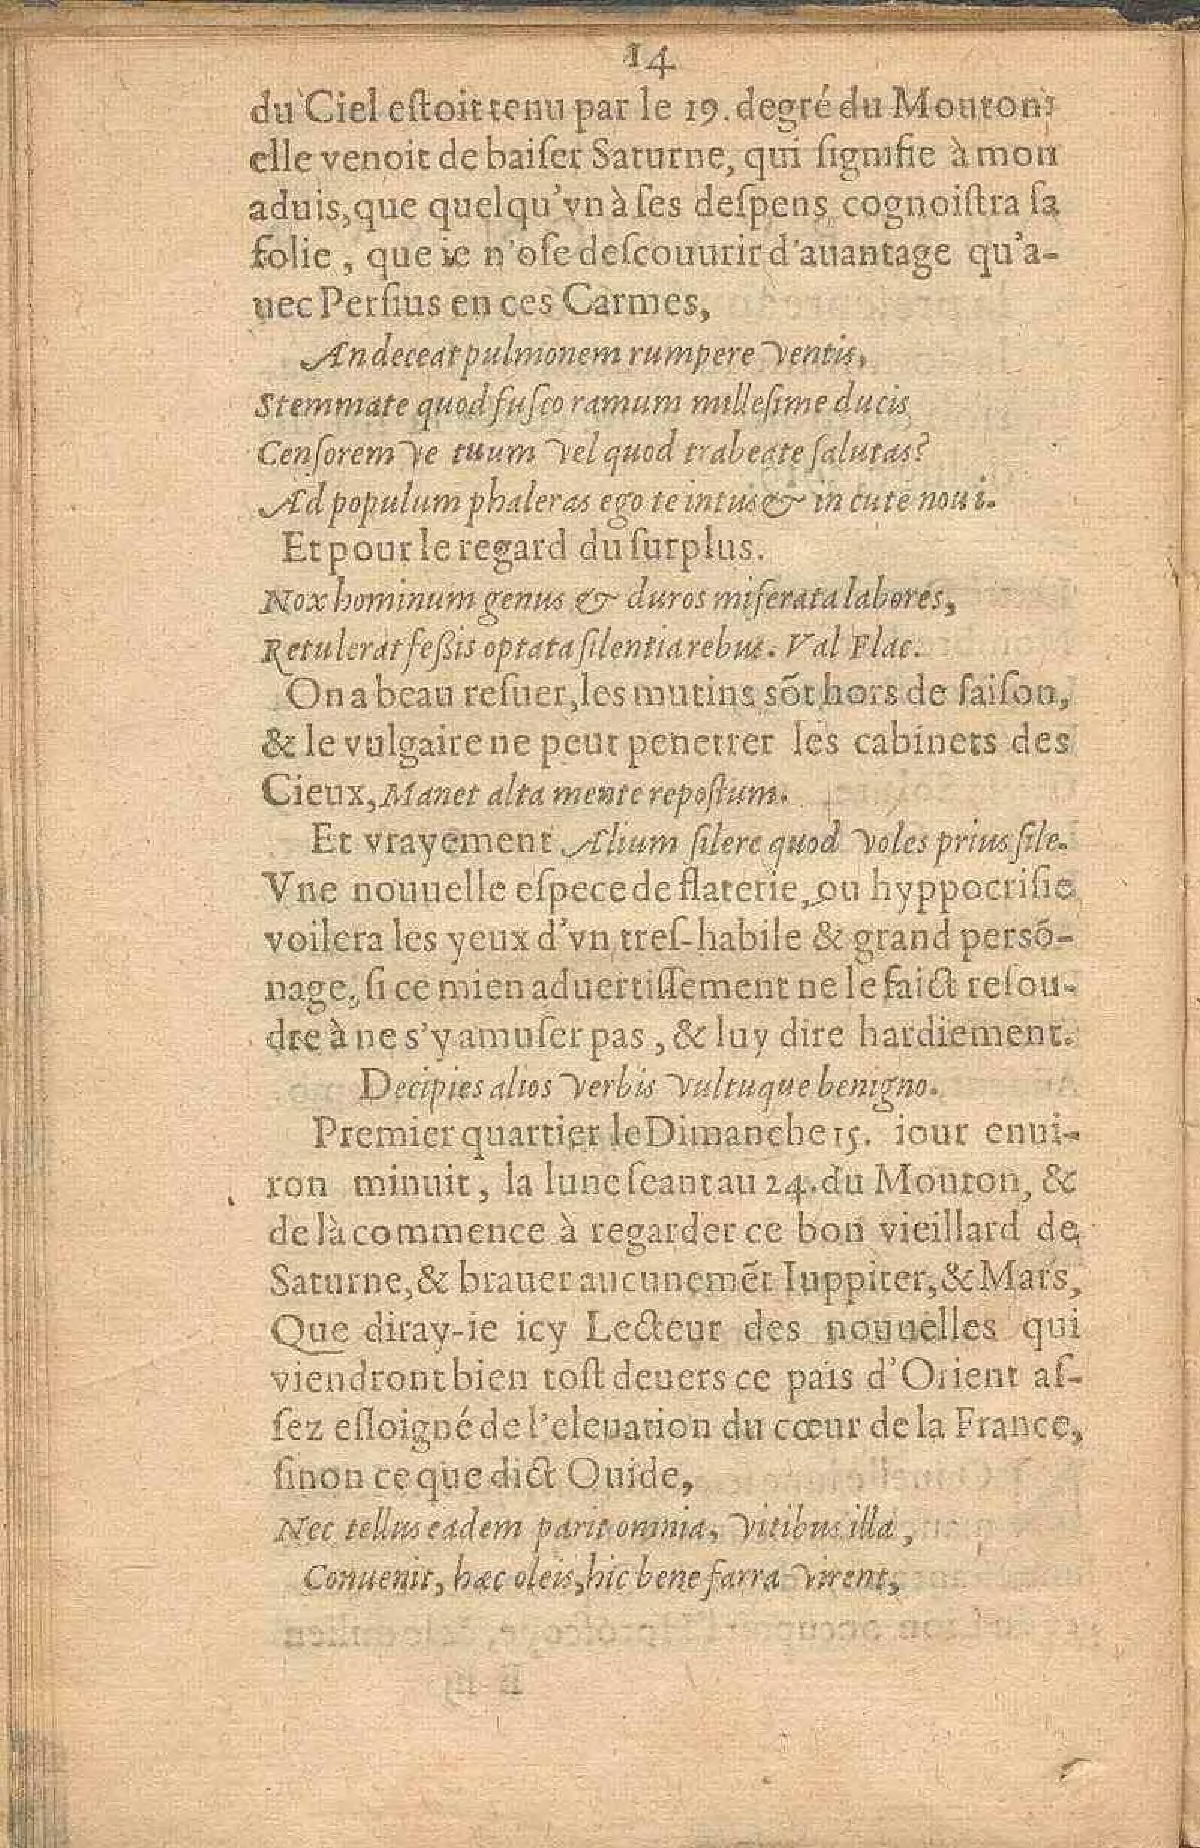 14
du Ciel estoit tenu par le 19. degré du Mouton:
elle venoit de baiser Saturne, qui signifie à mon
aduis, que quelqu'vn à ses despens cognoistra sa
folie, que ie n'ose descouurir d'auantage qu'a-
uec Persius en ces Carmes,
An deceat pulmonem rumpere ventis,
Stemmate quod fusco ramum millesime ducis
Censorem ve tuum vel quod trabeate salutas?
Ad populum phaleras ego te intus & in cute noui.
Et pour le regard du surplus.
Nox hominum genus & duros miserata labores,
Retulerat fessis optata silentia rebus. Val Flac.
On a beau resuer, les mutins sõt hors de saison,
& le vulgaire ne peut penetrer les cabinets des
Cieux, Manet alta mente repostum.
Et vrayement Alium silere quod voles prius sile.
Vne nouuelle espece de flaterie, ou hyppocrisie
voilera les yeux d'vn tres-habile & grand persõ-
nage, si ce mien aduertissement ne le faict resou-
dre à ne s'y amuser pas, & luy dire hardiement.
Decipies alios verbis vultuque benigno.
Premier quartier le Dimanche 15. iour enui-
ron minuit, la lune seant au 24. du Mouton, &
de là commence à regarder ce bon vieillard de
Saturne, & brauer aucunemẽt Iuppiter, & Mars,
Que diray-ie icy Lecteur des nouuelles qui
viendront bien tost deuers ce pais d'Orient as-
sez esloigné de l'eleuation du cœur de la France,
sinon ce que dict Ouide,
Nec tellus eadem parit omnia, vitibus illa,
Conuenit, hæc oleis, hic bene farra virent,